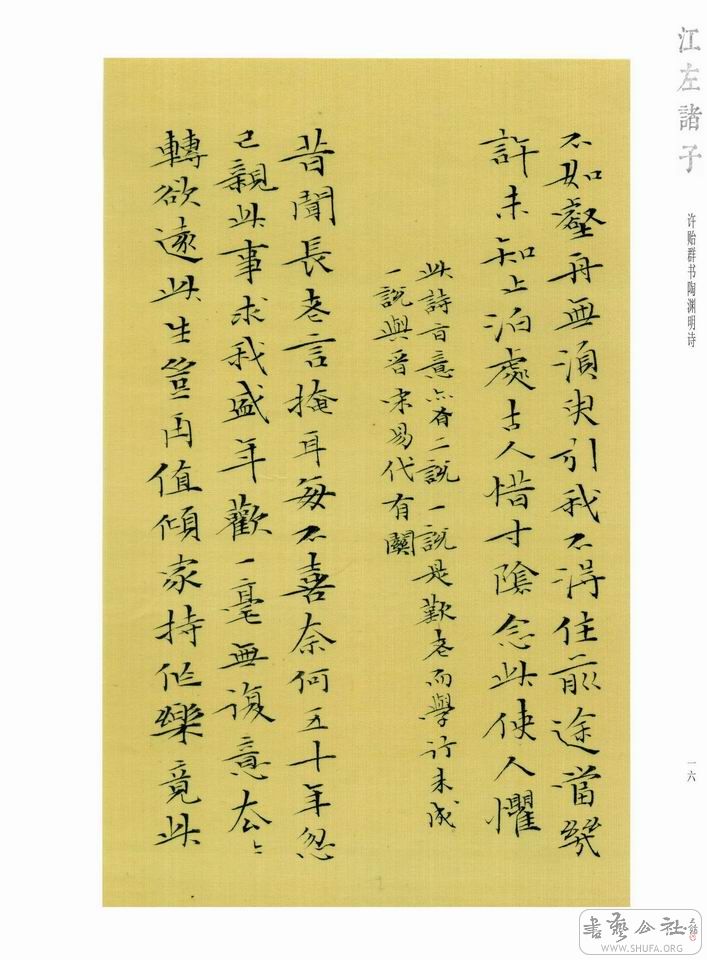 江左諸子
许贻群书陶渊明诗
一六
不如壑舟無須臾引我不得住前途當幾
許未知止泊處古人惜寸陰念此使人懼
此詩旨意亦有二說一說是歎老而學行未成
一說與晉宋易代有關
昔聞長老言掩耳每不喜奈何五十年忽
已親此事求我盛年歡一毫無復意去〻
轉欲遠此生豈再值傾家持作樂竟此
書藝公社
WWW.SHUFA.ORG